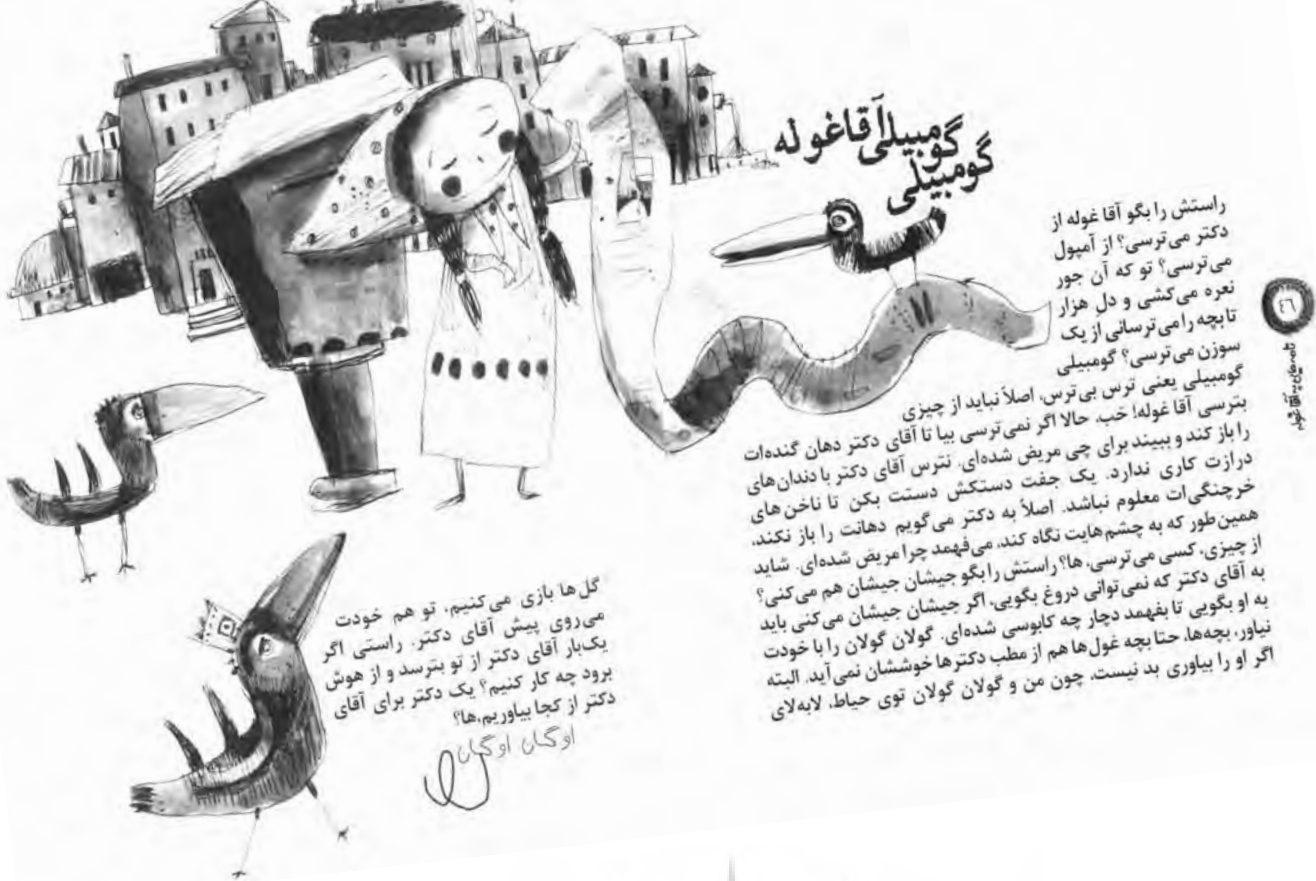 گومبیلی
گومبیلی آقا غوله
راستش را بگو آقا غوله از
دکتر می‌ترسی؟ از آمپول
می‌ترسی؟ تو که آن جور
نعره می‌کشی و دلِ هزار
تا بچه را می‌ترسانی از یک
سوزن می‌ترسی؟ گومبیلی
گومبیلی یعنی ترس بی‌ترس، اصلاً نباید از چیزی
بترسی آقا غوله! خب، حالا اگر نمی‌ترسی بیا تا آقای دکتر دهان گنده‌ات
را باز کند و ببیند برای چی مریض شده‌ای. نترس آقای دکتر با دندان‌های
درازت کاری ندارد. یک جفت دستکش دستت بکن تا ناخن‌های
خرچنگی‌ات معلوم نباشد. اصلاً به دکتر می‌گویم دهانت را باز نکند،
همین‌طور که به چشم‌هایت نگاه کند، می‌فهمد چرا مریض شده‌ای. شاید
از چیزی، کسی می‌ترسی، ها؟ راستش را بگو جیشان جیشان هم می‌کنی؟
به آقای دکتر که نمی‌توانی دروغ بگویی، اگر جیشان جیشان می‌کنی باید
به او بگویی تا بفهمد دچار چه کابوسی شده‌ای. گولان گولان را با خودت
نیاور، بچه‌ها، حتا بچه غول‌ها هم از مطب دکترها خوششان نمی‌آید. البته
اگر او را بیاوری بد نیست، چون من و گولان گولان توی حیاط، لابه‌لای
گل‌ها بازی می‌کنیم، تو هم خودت
می‌روی پیش آقای دکتر. راستی اگر
یک‌بار آقای دکتر از تو بترسد و از هوش
برود چه کار کنیم؟ یک دکتر برای آقای
دکتر از کجا بیاوریم، ها؟
اوگان اوگان
٤٦